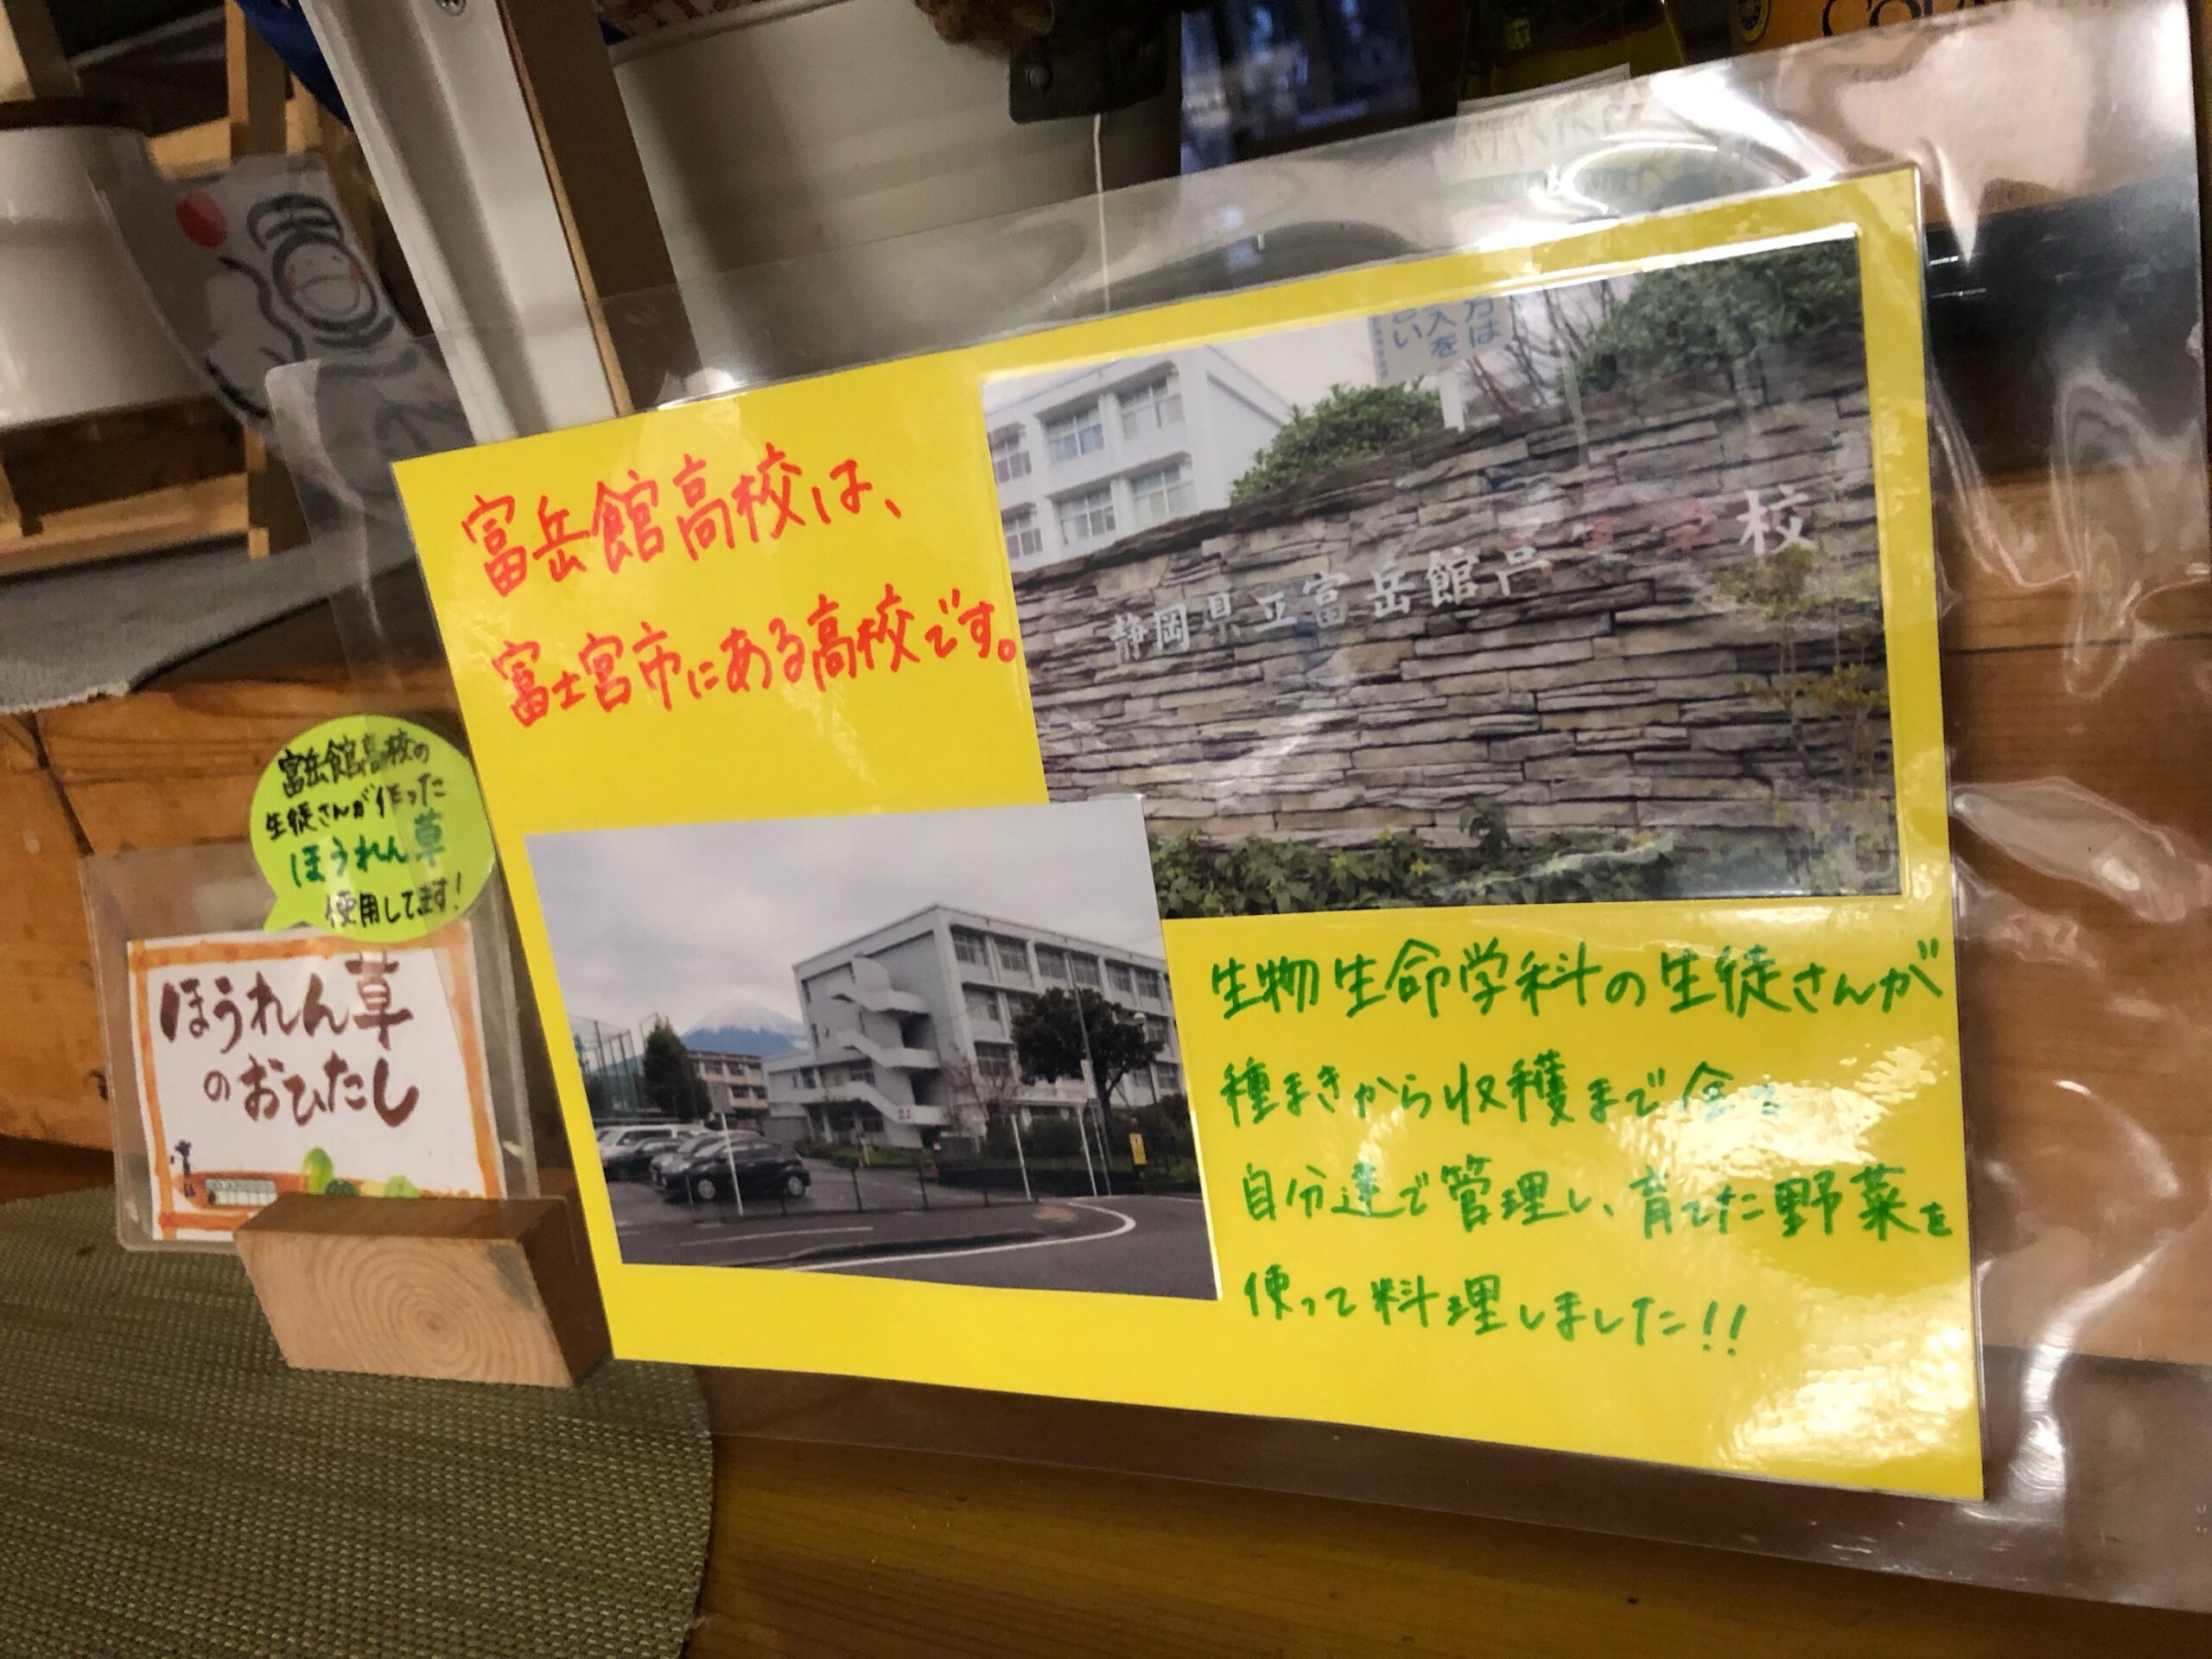 富岳館高校は、
富士宮市にある高校です。
方は
入を
さい
静岡県立富岳館高等学校
富岳館高校の
生徒さんが作った
ほうれん草
使用してます!
ほうれん草
のおひたし
生物生命学科の生徒さんが
種まきから収穫まで全て
自分達で管理し、育てた野菜を
使って料理しました!!